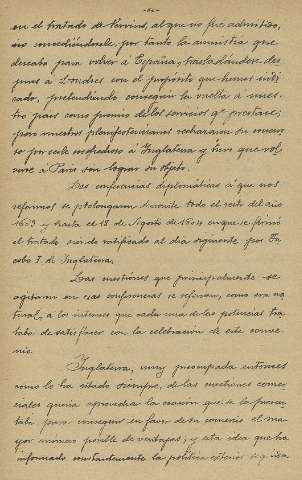 en el tratado de Vervins, al que no fue admitido,
no concediéndosele, por tanto la amnistia que
deseaba para volver á España, trasladándose des
pues á Londres con el propósito que hemos indi
cado, pretendiendo conseguir la vuelta á nues
tro pais como premio de los servicios q.e prestase;
pero nuestros plenipotenciarios rechazaron su concur
so por serle sospechoso á Inglaterra y tuvo que vol
verse á Paris sin lograr su objeto.
Las conferencias diplomáticas á que nos
referimos se prolongaron durante todo el resto del año
1603 y hasta el 18 de Agosto de 1604 en que se firmó
el tratado siendo ratificado al dia siguiente por Ja
cobo I. de Inglaterra.
Las cuestiones que principalmente se
agitaron en esas conferencias se referian, como era na
tural, á los intereses que cada una de las potencias tra
taba de satisfacer con la celebración de este conve
nio.
Inglaterra, muy preocupada entonces
como lo ha estado siempre, de las cuestiones comer
ciales queria aprovechar la ocasión que se le presen
taba para conseguir en favor de su comercio el ma
yor número posible de ventajas; y esta idea que ha
informado constantemente la politica exterior inglesa